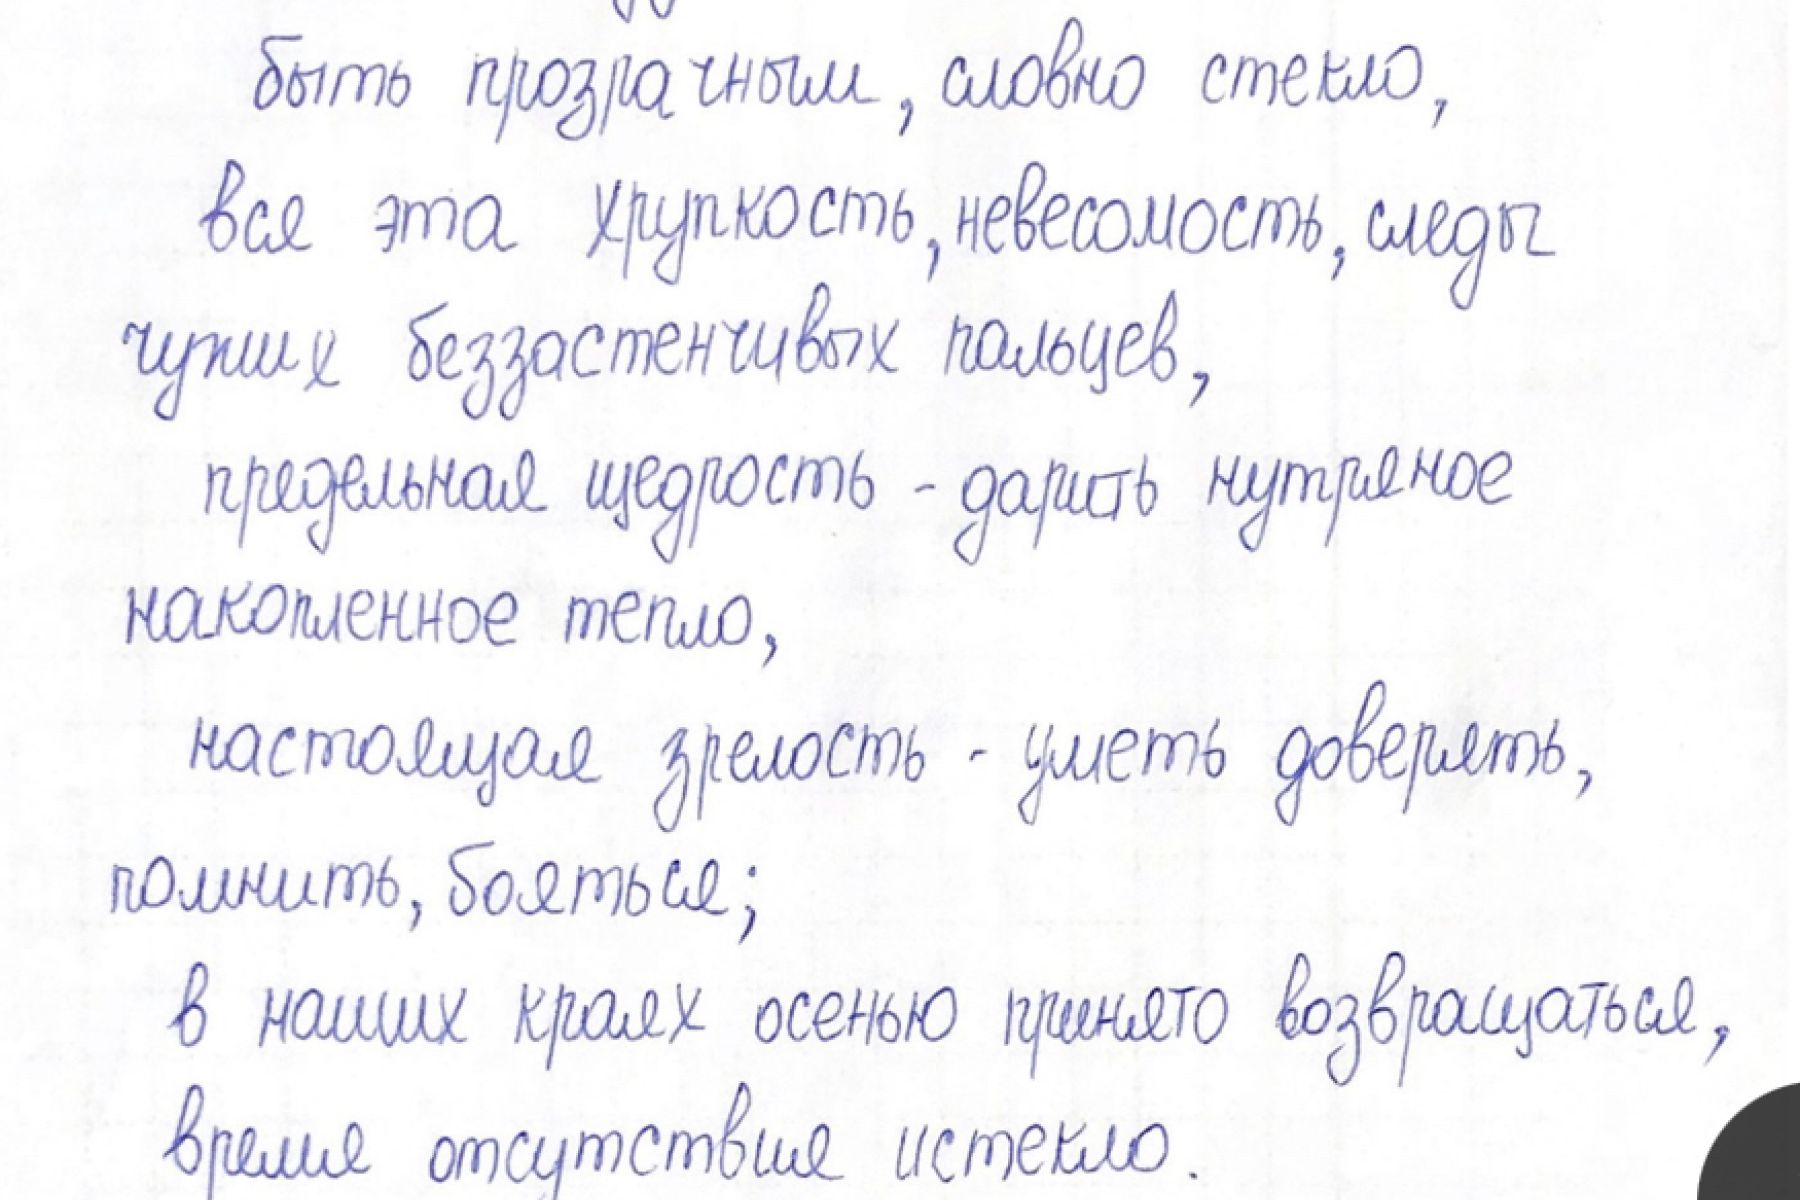 быть прозрачным, словно стекло,
вся эта хрупкость, невесомость, следы
чужих беззастенчивых пальцев,
предельная щедрость - дарить нутряное
накопленное тепло,
настоящая зрелость - уметь доверять,
помнить, бояться;
в наших краях осенью принято возвращаться,
время отсутствия истекло.